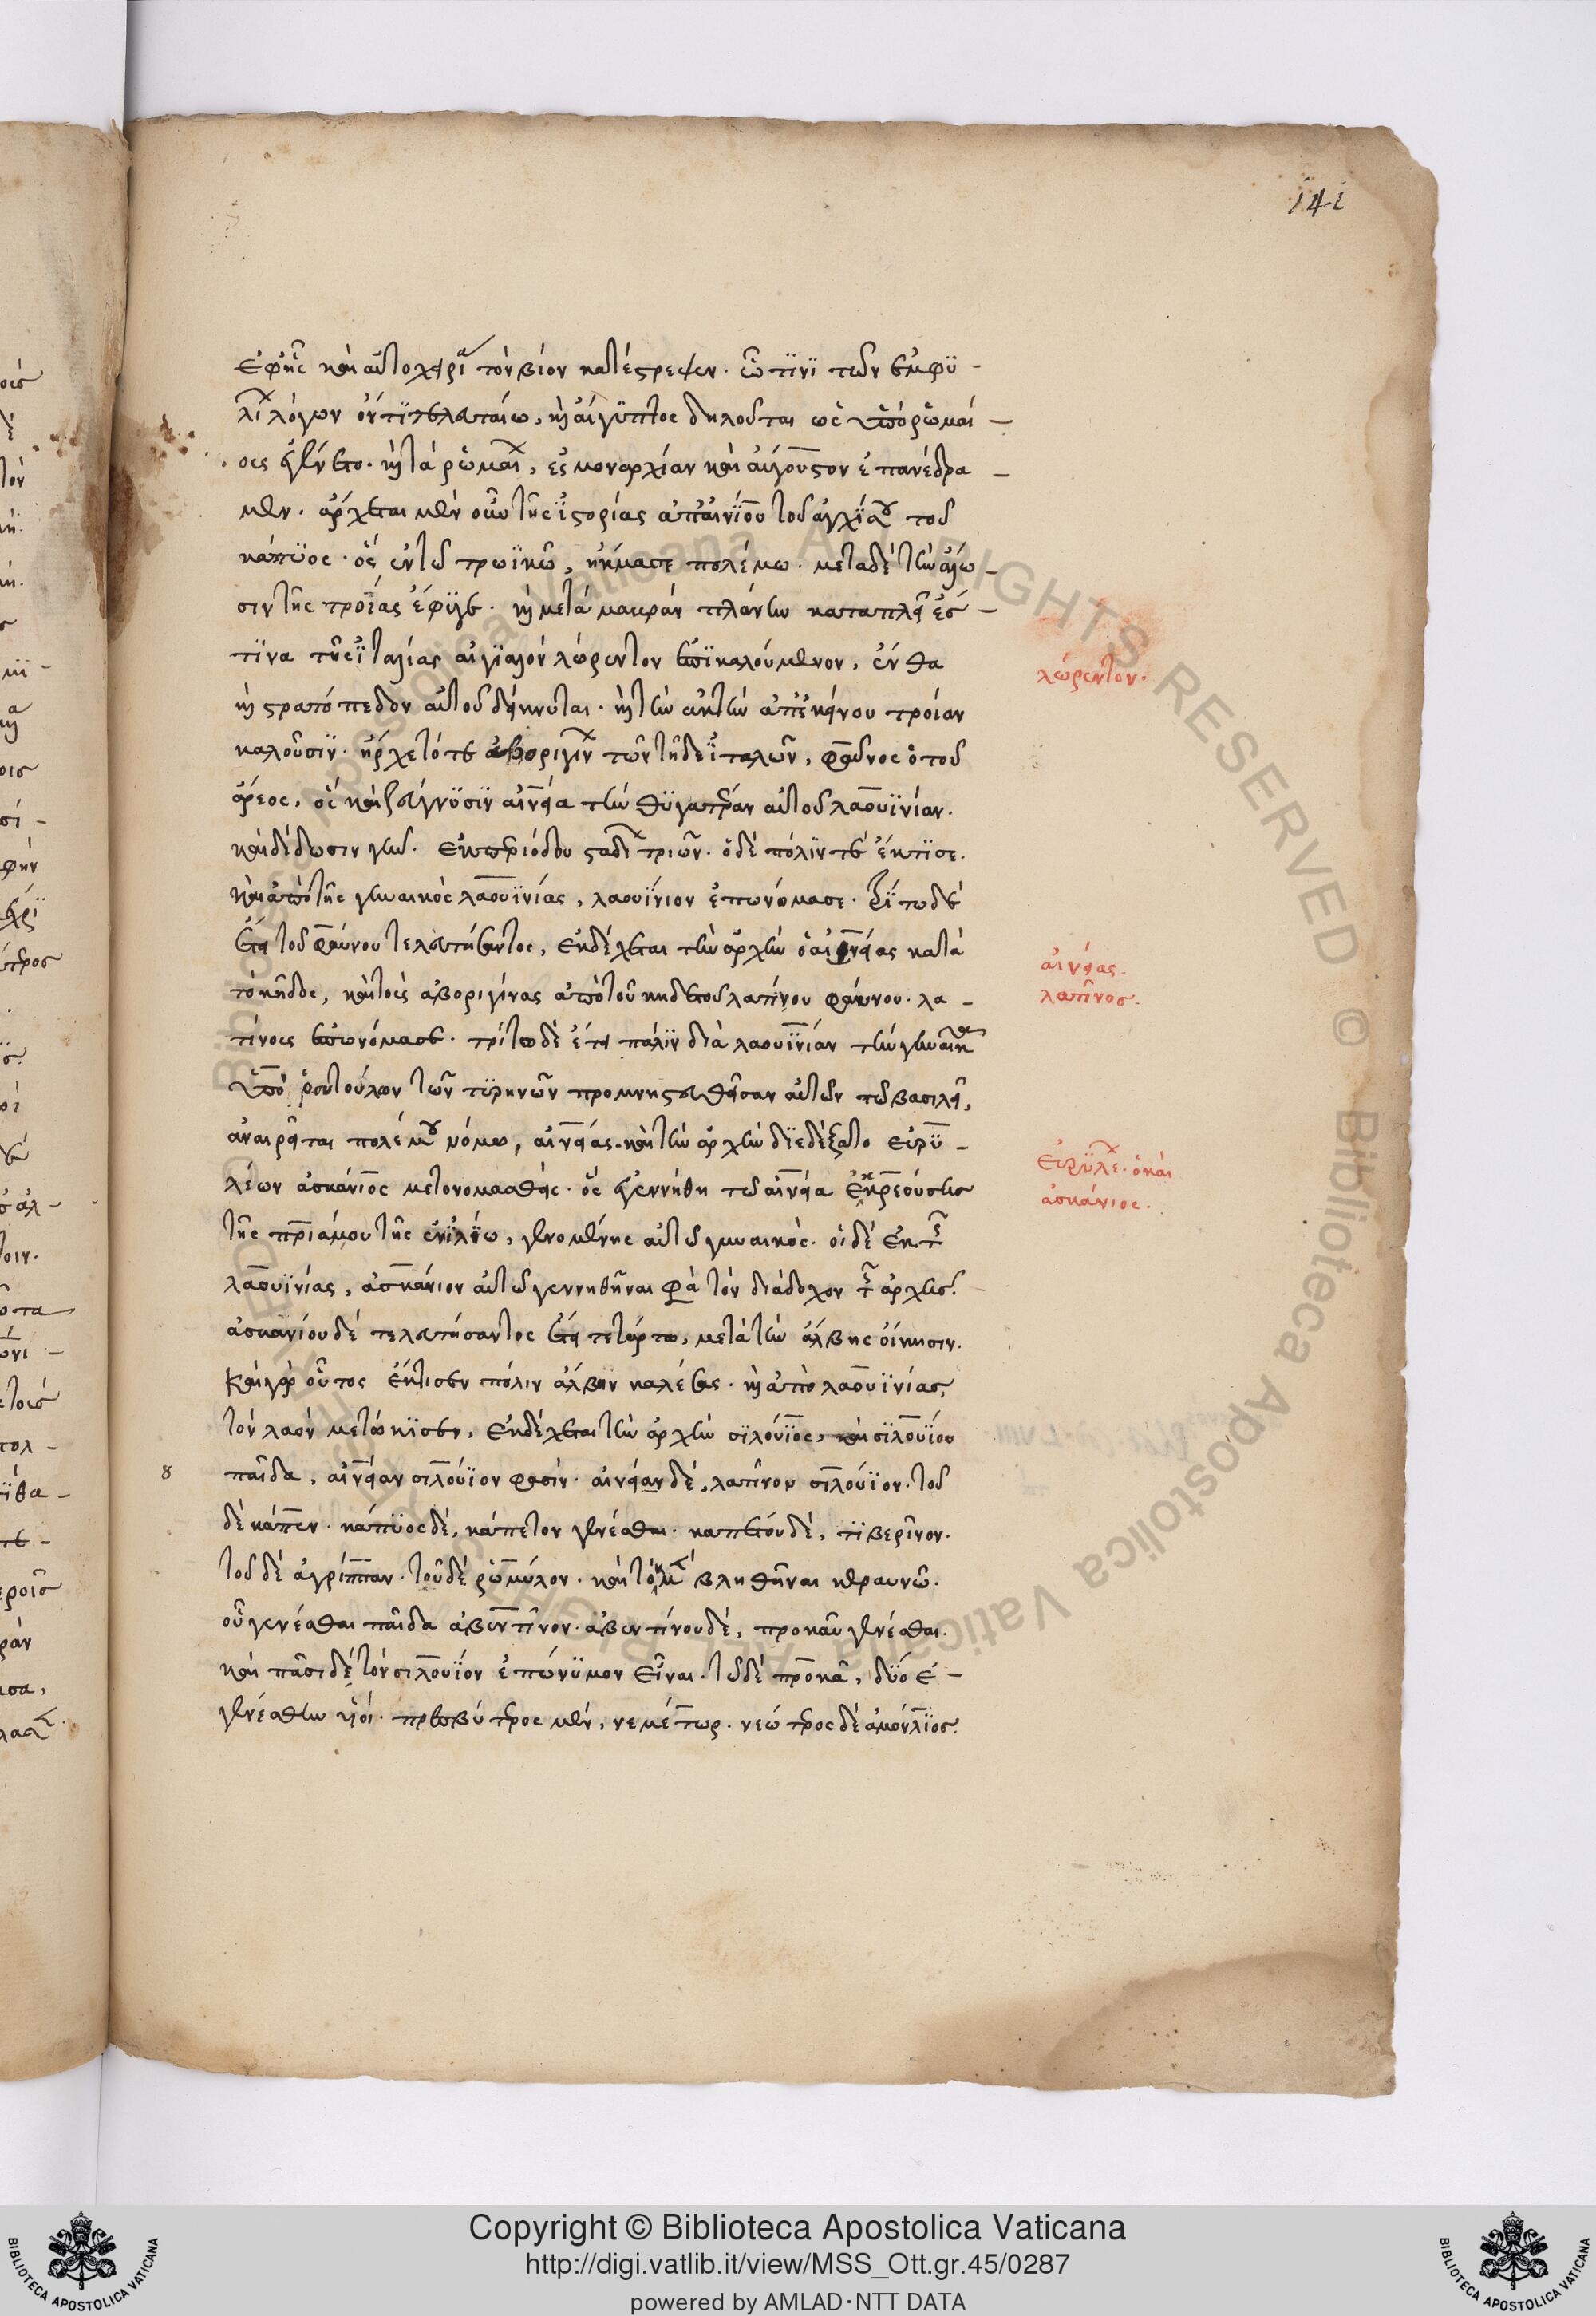 141
ἐφῆς καὶ αὐτοχειρίᾳ τὸν βίον κατέστρεψεν. ὧ τινι τῶν ἐμφυ-
λι λόγων ὄντι τελευταίω, καὶ αἴγυπτος δηλοῦται ὡς ὑπὸ ῥωμαί-
οις ἐγένετο. καὶ τὰ ῥωμαι, ἐς μοναρχίαν καὶ αὔγουστον ἐπανέδρα-
μεν. ἄρχεται μὲν οὖν τῆς ἱστορίας ἀπ' αἰνίου τοῦ ἀγχίσου τοῦ
κάπυος. ὃς ἐν τῶ τρωϊκῶ, ἤκμασε πολέμω. μετὰ δὲ τὴν ἅλω-
σιν τῆς τροίας ἔφυγε. καὶ μετὰ μακρὰν πλάνην καταπλεῖ ἐς
τινα τῆς ἰταλίας αἰγιαλὸν λώρεντον ἐπικαλούμενον, ἔνθα
καὶ στρατόπεδον αὐτοῦ δείκνυται. καὶ τὴν ἀκτὴν ἀπ' ἐκείνου τροίαν
καλοῦσιν. ἦρχε τότε ἀβοριγιν τῶν τῆδε ἰταλῶν, φαῦνος ὁ τοῦ
ἄρεος, ὃς καὶ ζεύγνυσιν αἰνεία τὴν θυγατέραν αὐτοῦ λαουϊνίαν.
καὶ δίδωσιν γῆν. ἐκ περιόδου σταδι τριῶν. ὁ δὲ πόλιν τὲ ἔκτισε.
καὶ ἀπὸ τῆς γυναικὸς λαουϊνίας, λαουΐνιον ἐπωνόμασε. τρίτω δὲ
ἔτει τοῦ φαύνου τελευτήσαντος, ἐκδέχεται τὴν ἀρχὴν ὁ αἰνείας κατὰ
τὸ κῆδος, καὶ τοὺς ἀβοριγίνας ἀπὸ τοῦ κηδεστοῦ λατίνου φαύνου. λα-
τίνους ἐπωνόμασε. τρίτω δὲ ἔτει πάλιν διὰ λαουϊνίαν τὴν γυναῖκα
ὑπὸ ῥουτούλων τῶν τυρηνῶν προμνηστευθεῖσαν αὐτῶν τῶ βασιλεῖ,
ἀναιρεῖται πολέμου νόμω, αἰνείας. καὶ τὴν ἀρχὴν διεδέξατο εὐρυ-
λέων ἀσκάνιος μετονομασθεὶς. ὃς ἐγεννήθη τῶ αἰνεία ἐκ κρεούσης
τῆς πριάμου τῆς ἐν ἰλίω, γενομένης αὐτῶ γυναικὸς. οἱ δὲ ἐκ τῆς
λαουϊνίας, ἀσκάνιον αὐτῶ γεννηθῆναι φασὶ τὸν διάδοχον τῆς ἀρχῆς.
ἀσκανίου δὲ τελευτήσαντος ἔτει τετάρτω, μετὰ τὴν ἄλβης οἴκησιν.
καὶ γὰρ οὗτος ἔκτισεν πόλιν ἄλβην καλέσας. καὶ ἀπὸ λαουϊνίας,
τὸν λαὸν μετώκισεν, ἐκδέχεται τὴν ἀρχὴν σιλούϊος, καὶ σιλουΐου
παῖδα, αἰνείαν σιλούϊον φασὶν. αἰνείαν δὲ, λατῖνον σιλούϊον. τοῦ
δὲ κάπεν. κάπυος δὲ, κάπετον γενέσθαι. καπέτου δὲ, τιβερῖνον.
τοῦ δὲ ἀγρίππαν. τοῦ δὲ ῥωμύλον. καὶ τόν μὲν βληθῆναι κεραυνῶ.
οὗ γενέσθαι παῖδα ἀβεντῖνον. ἀβεντίνου δὲ, πρόκαν γενέσθαι.
καὶ πᾶσι δὲ τὸν σιλούϊον ἐπώνυμον εἶναι. τῶ δὲ πρόκα, δύο ἐ-
γενέσθην υἱοί. πρεσβύτερος μὲν, νεμέτωρ. νεώτερος δὲ ἀμούλιος.
λώρεντον.
αἰνείας.
λατῖνος.
εὐρυλέ. ὁ καὶ
ἀσκάνιος.
Copyright © Biblioteca Apostolica Vaticana
http://digi.vatlib.it/view/MSS_Ott.gr.45/0287
powered by AMLAD·NTT DATA
BIBLIOTECA APOSTOLICA VATICANA
BIBLIOTECA APOSTOLICA VATICANA